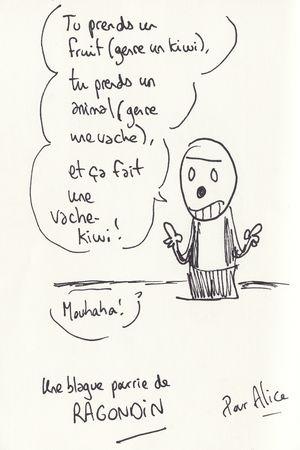 Tu prends un
fruit (genre un kiwi),
tu prends un
animal (genre
une vache),
et ça fait
une
vache-
kiwi!
Mouhaha!
Une blague pourrie de
RAGONDIN
Pour Alice